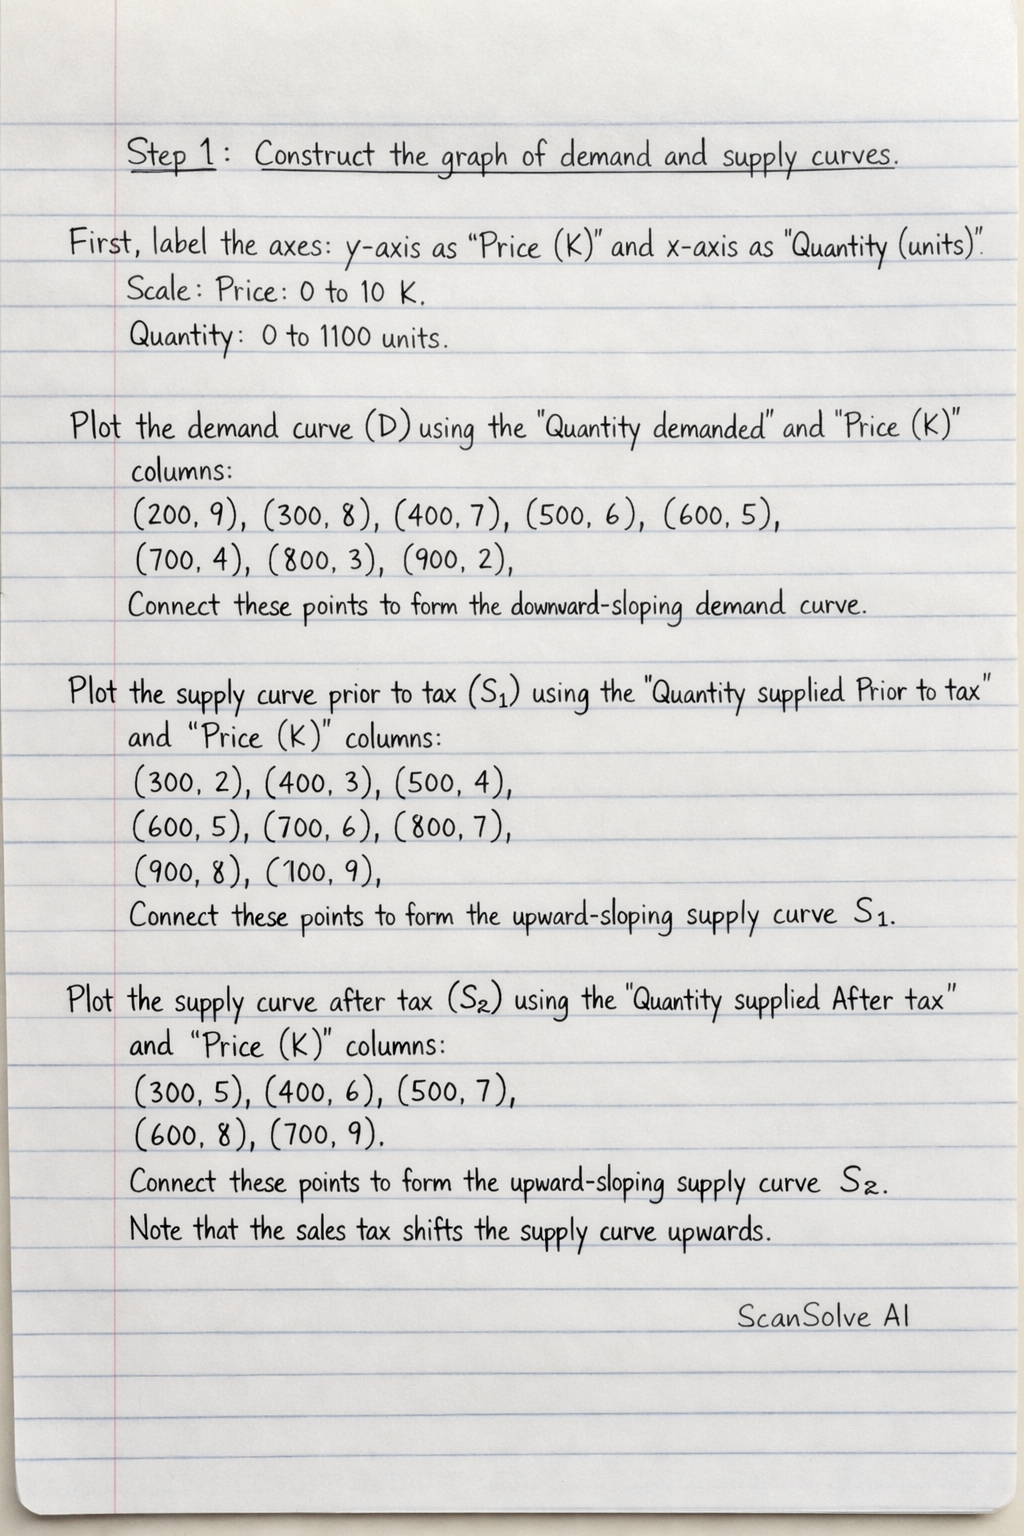 Step 1: Construct the graph of demand and supply curves.
First, label the axes: y-axis as “Price (K)" and x-axis as "Quantity (units)".
Scale: Price: 0 to 10 K.
Quantity: 0 to 1100 units.
Plot the demand curve (D) using the "Quantity demanded" and "Price (K)"
columns:
(200, 9), (300, 8), (400, 7), (500, 6), (600, 5),
(700, 4), (800, 3), (900, 2),
Connect these points to form the downward-sloping demand curve.
Plot the supply curve prior to tax (S₁) using the "Quantity supplied Prior to tax"
and “Price (K)" columns:
(300, 2), (400, 3), (500, 4),
(600, 5), (700, 6), (800, 7),
(900, 8), (100, 9),
Connect these points to form the upward-sloping supply curve S₁.
Plot the supply curve after tax (S₂) using the "Quantity supplied After tax"
and “Price (K)" columns:
(300, 5), (400, 6), (500, 7),
(600, 8), (700, 9).
Connect these points to form the upward-sloping supply curve S₂.
Note that the sales tax shifts the supply curve upwards.
ScanSolve AI